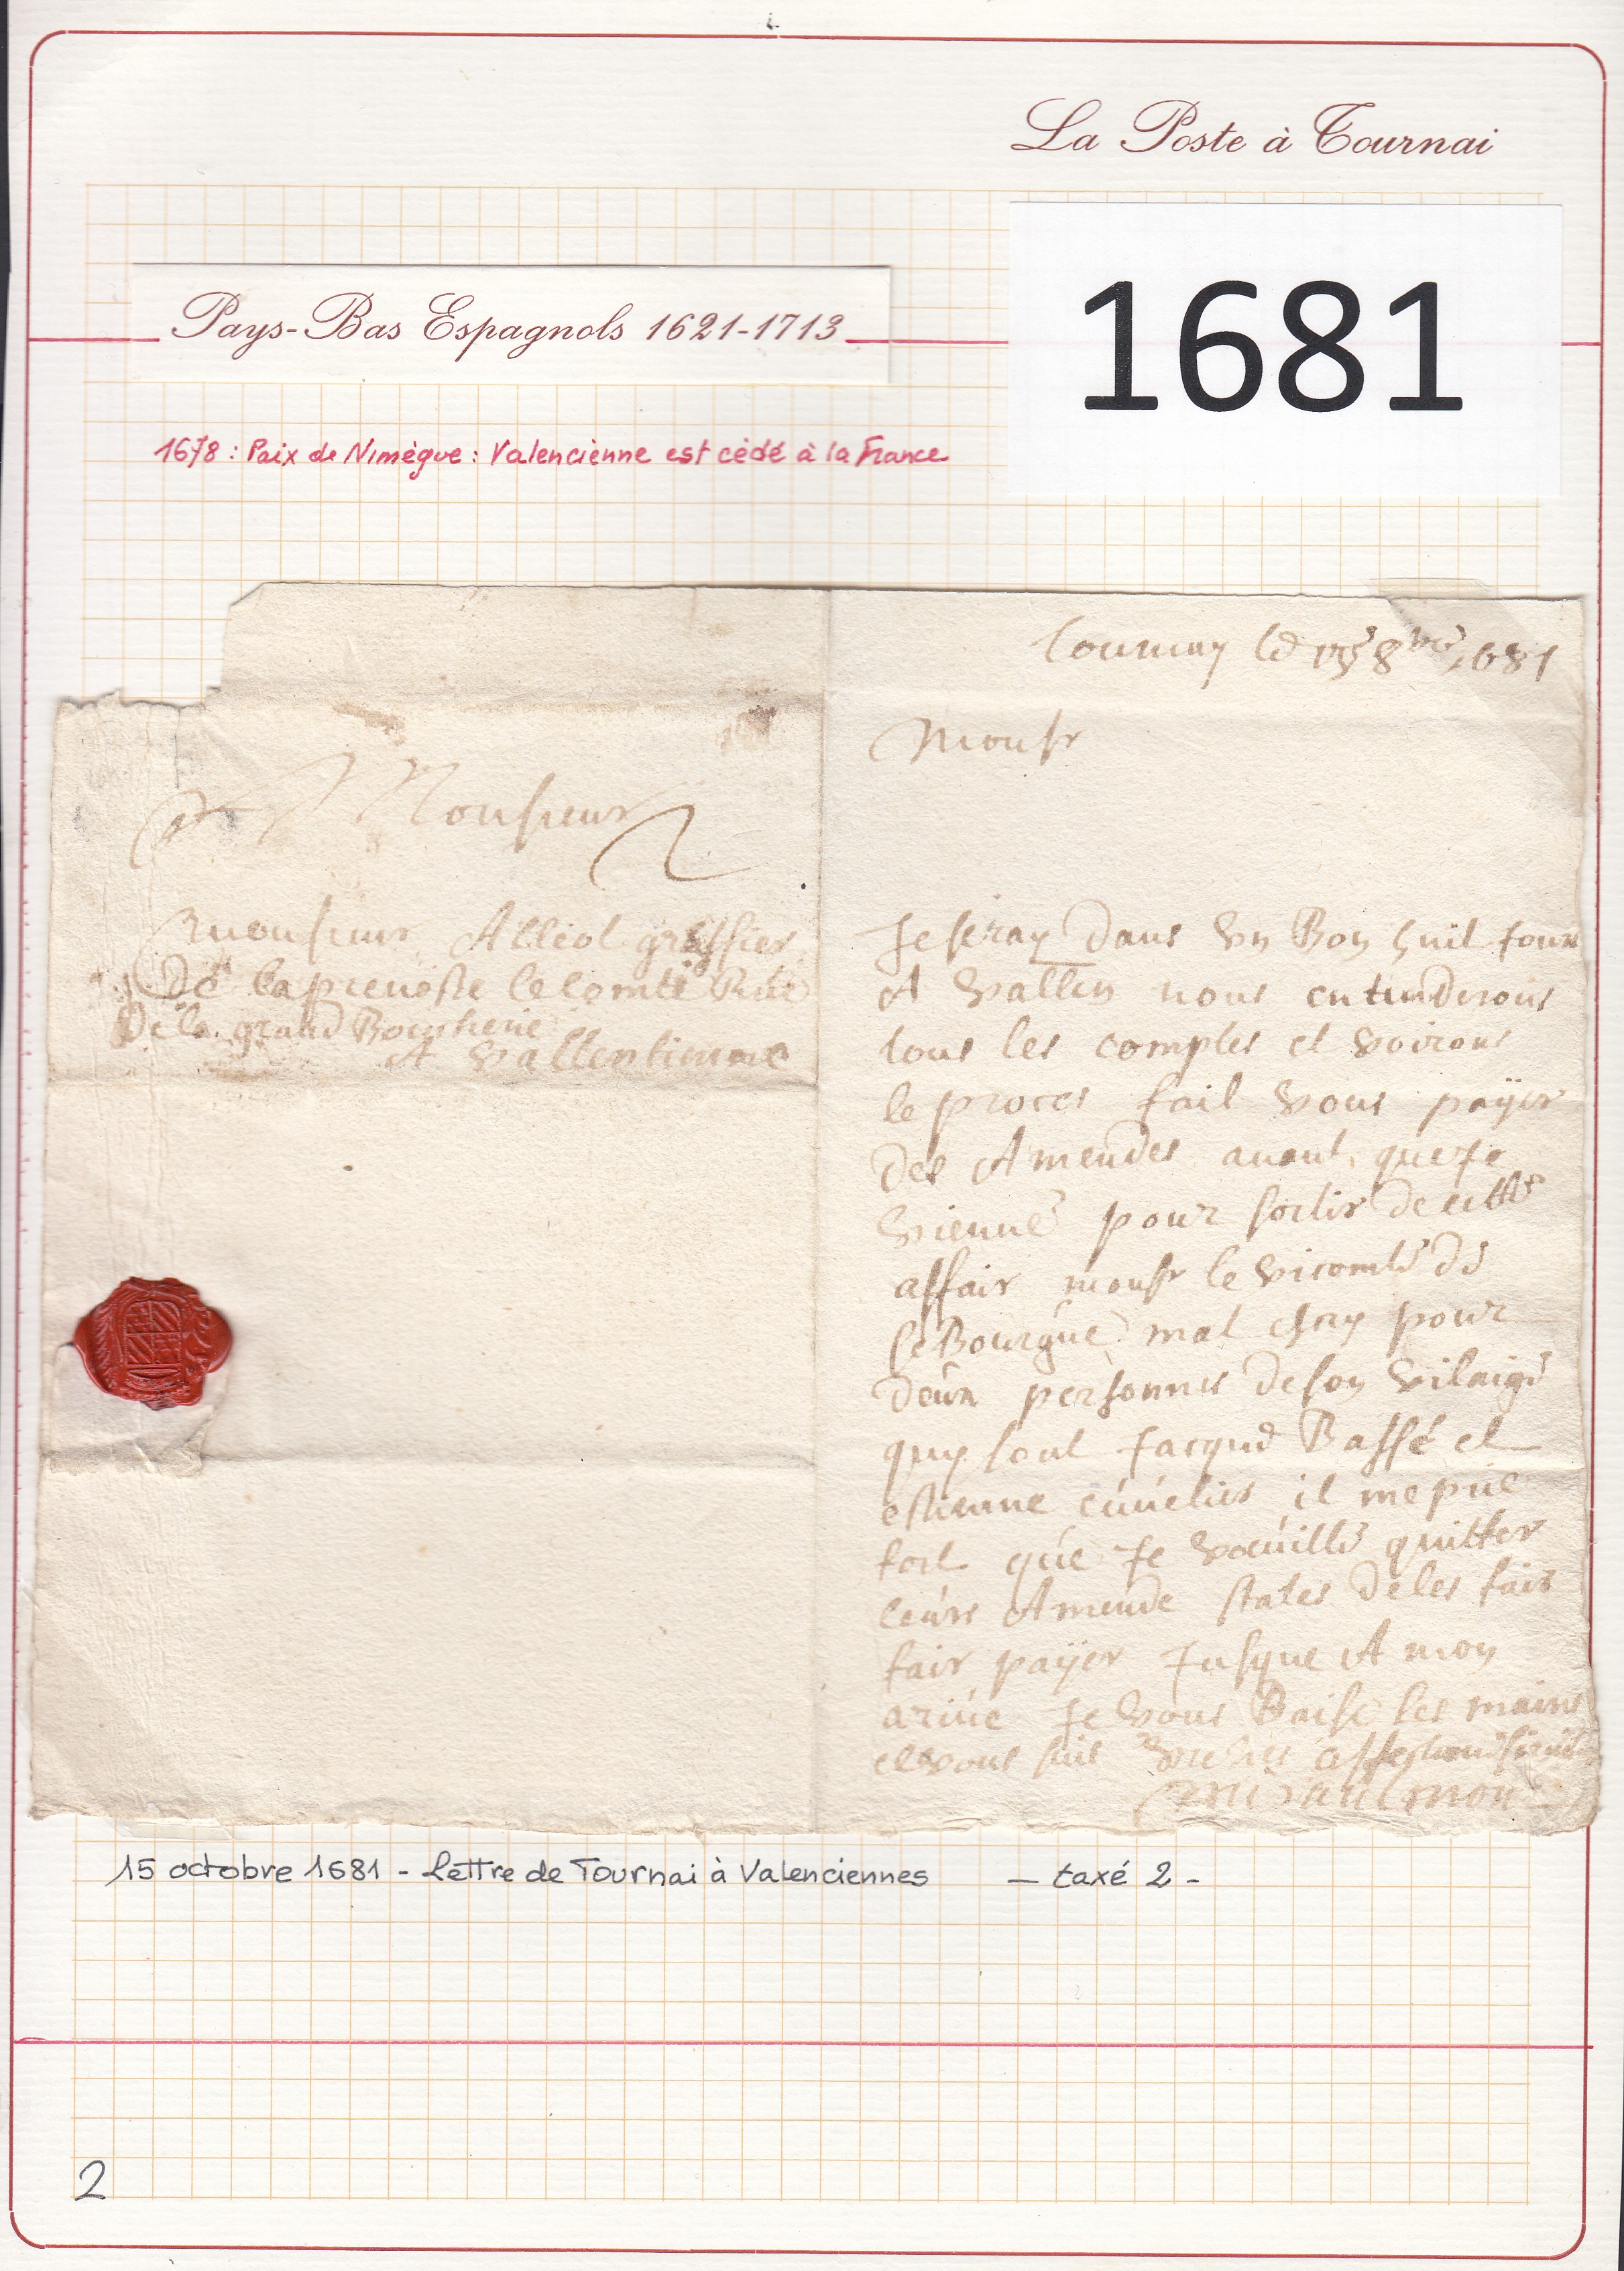 La Poste à Tournai
1681
Pays-Bas Espagnols 1621-1713
1678 : Paix de Nimègue : Valencienne est cèdé à la France
A Monsieur
monsieur Alliol greffier
de la prevoste le comte Rúe
de la grand Boucherie
A vallentienne
Tournay le 8bre 1681
Monsr
Je seray dans vn Bon huit jour
A vallen nous entenderons
tous les comptes et voirons
le proces fait vous payer
des Amendes auant que je
vienne pour sortir de cette
affair monsr le vicomte de
le Bourgúe mat escry pour
deúx personnes de son vilaige
quy sont Jacque Baffé et
estienne cúúelier il me prie
fort qúe Je voúille quitter
leúrs Amende states de les fair
fair payer Jusque A mon
ariúe Je vous Baise les mains
et vous suis
15 octobre 1681 - Lettre de Tournai à Valenciennes — taxé 2 -
2